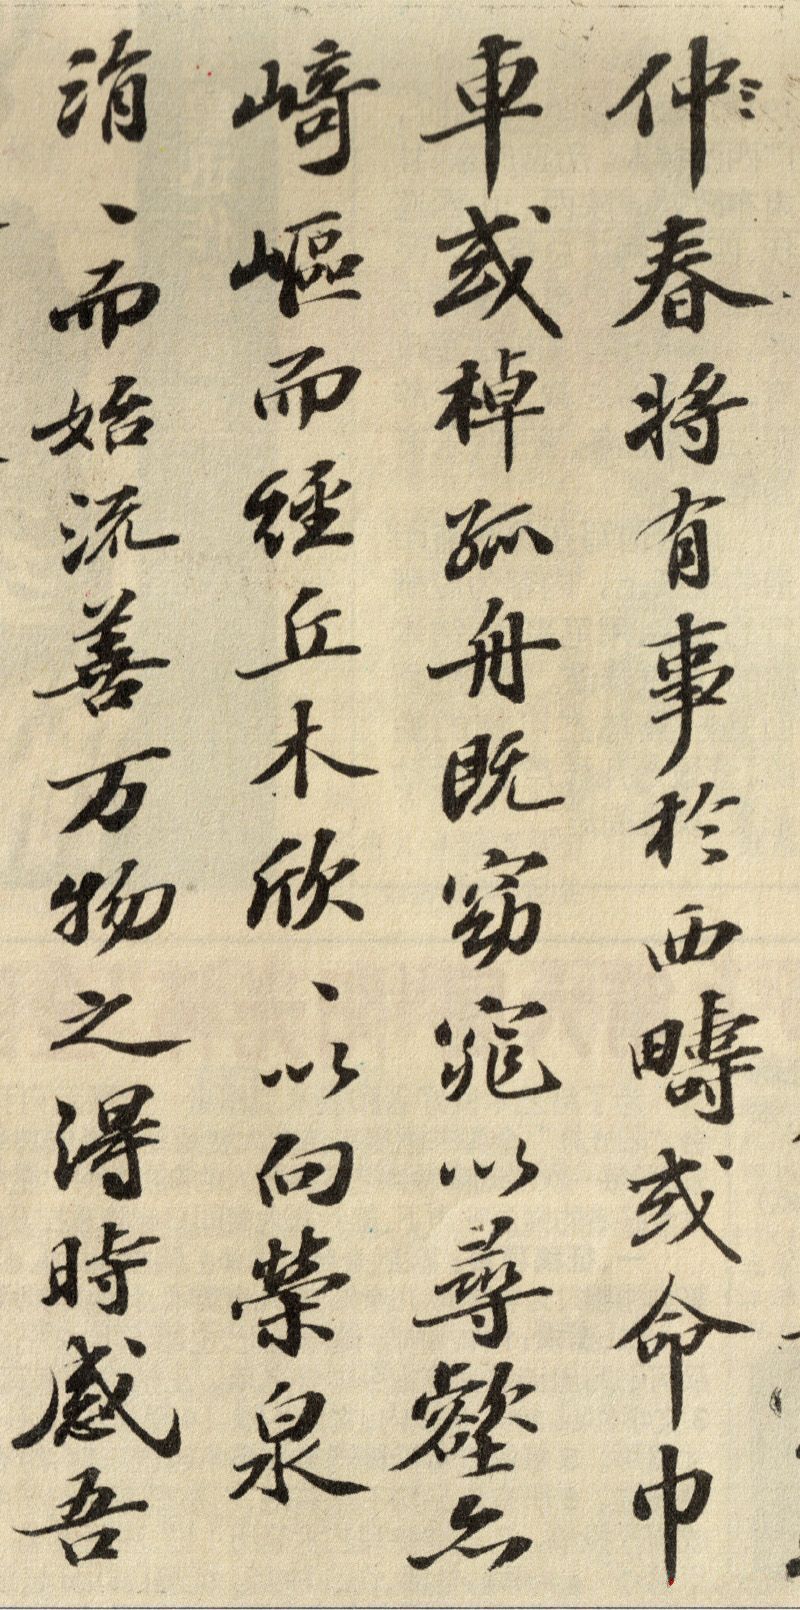 仲春将有事於西疇或命巾
車或棹孤舟既窈窕以尋壑亦
崎嶇而經丘木欣〻以向榮泉
涓〻而始流善万物之得時感吾